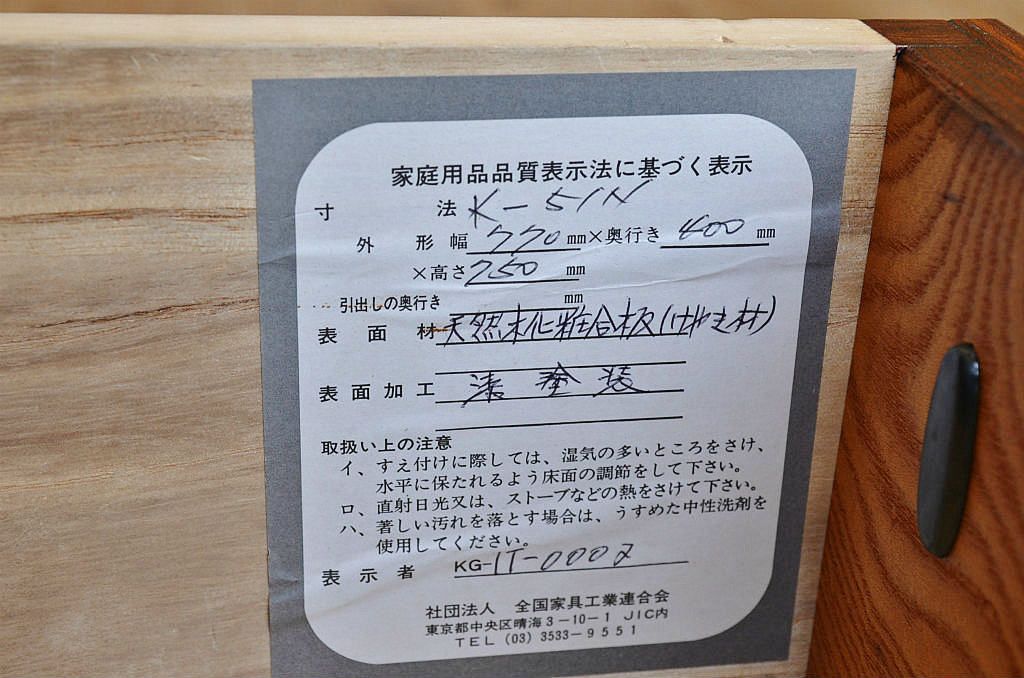 家庭用品品質表示法に基づく表示
寸法 K-51N
外形幅 770 mm×奥行き 400 mm
×高さ 250 mm
引出しの奥行き mm
表面材 天然木化粧合板(けやき材)
表面加工 漆塗装
取扱い上の注意
イ、すえ付けに際しては、湿気の多いところをさけ、
水平に保たれるよう床面の調節をして下さい。
ロ、直射日光又は、ストーブなどの熱をさけて下さい。
ハ、著しい汚れを落とす場合は、うすめた中性洗剤を
使用してください。
表示者 KG-IT-0002
社団法人 全国家具工業連合会
東京都中央区晴海3-10-1 JIC内
TEL (03) 3533-9551